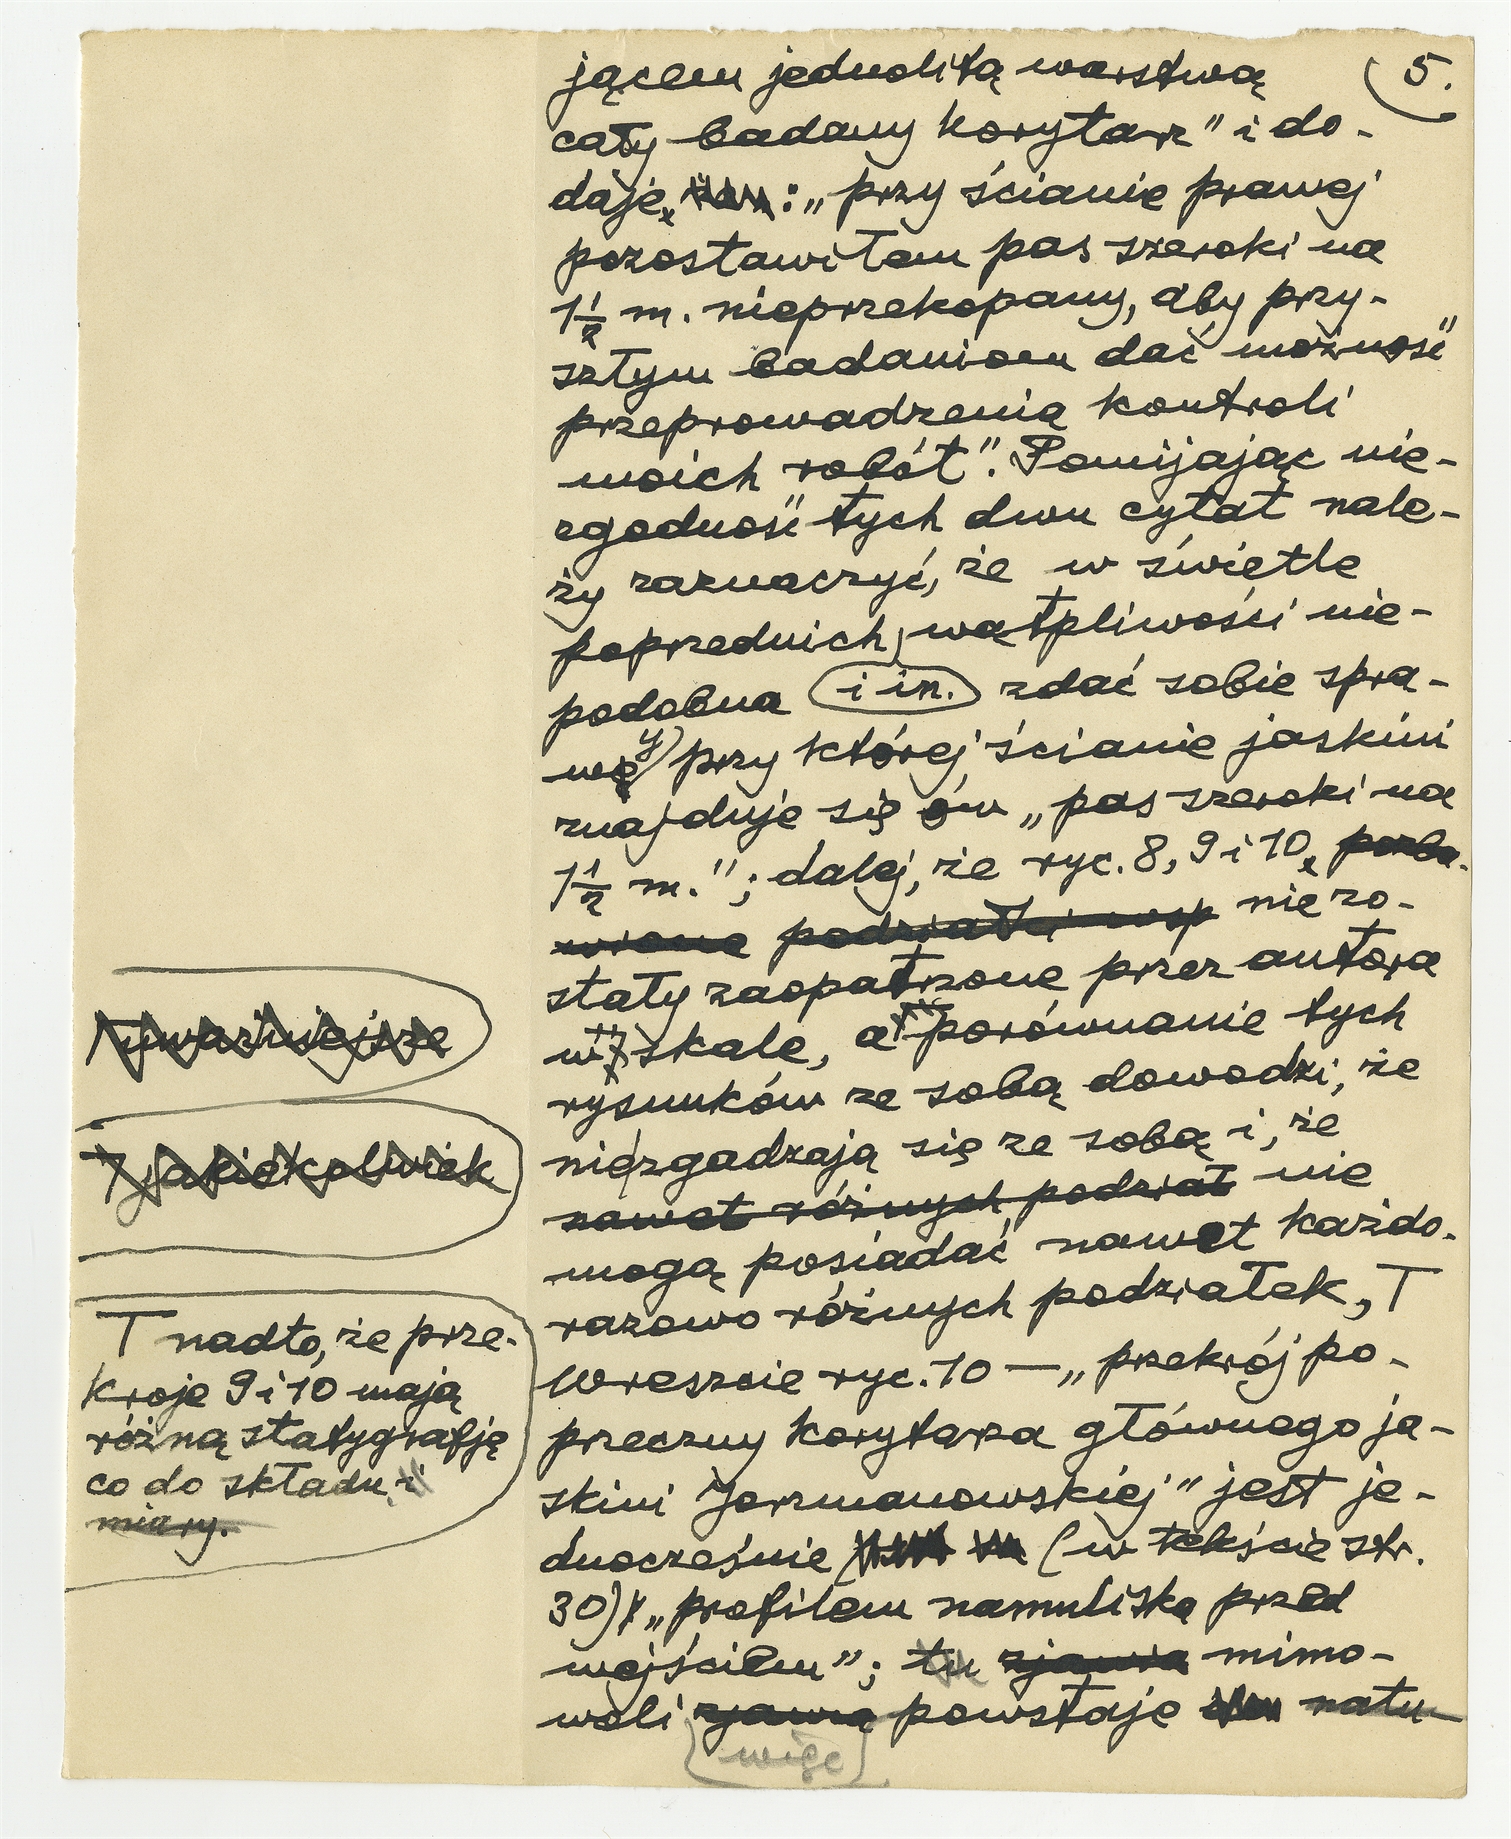 5.
jącem jednolitą warstwą
cały badany korytarz" i do-
daje : „przy ścianie prawej
pozostawiłem pas szeroki na
1½ m. nieprzekopany, aby przy-
szłym badaniom dać możność
przeprowadzenia kontroli
moich robót". Pomijając nie-
zgodność tych dwu cytat nale-
ży zaznaczyć, że w świetle
poprzednich wątpliwości nie-
podobna i in. zdać sobie spra-
wę przy której ścianie jaskini
znajduje się ów „pas szeroki na
1½ m."; dalej, że ryc. 8, 9 i 10 pozba-
wione podziałki wsp nie zo-
stały zaopatrzone przez autora
w skalę, a porównanie tych
rysunków ze sobą dowodzi, że
nie zgadzają się ze sobą i, że
nawet różnych podział nie
mogą posiadać nawet każdo-
razowo różnych podziałek, T
Wreszcie ryc. 10 — „przekrój po-
przeczny korytarza głównego ja-
skini Jerzmanowskiej" jest je-
dnocześnie (w tekście str.
30) „profilem namuliska przed
wejściem"; tu zjawia mimo-
woli zjawia powstaje natu-
więc
najważniejsze
T jakiekolwiek
T nadto, że prze-
kroje 9 i 10 mają
różną statygrafję
co do składu i
miary.